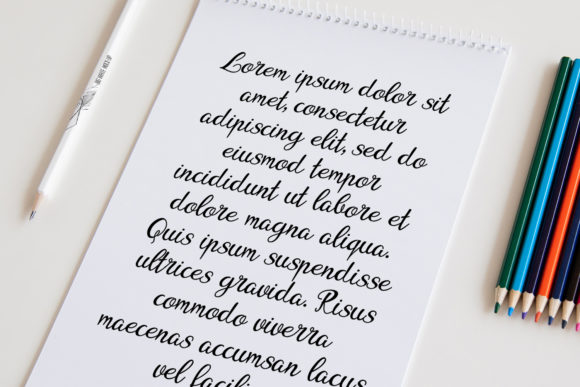 Lorem ipsum dolor sit
amet, consectetur
adipiscing elit, sed do
eiusmod tempor
incididunt ut labore et
dolore magna aliqua.
Quis ipsum suspendisse
ultrices gravida. Risus
commodo viverra
maecenas accumsan lacus
vel